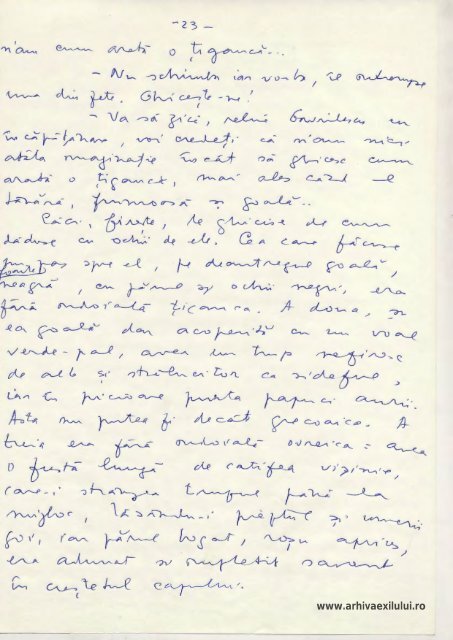 -23-
n'am cum arată o țigancă...
- Nu schimba iar vorba, îl întrerupse
una din fete. Ghicește-ne!
- Va să zică, reluă Gavrilescu cu
încăpățânare, voi credeți că n'am nici
atâta imaginație încât să ghicesc cum
arată o țigancă, mai ales când e
tânără, frumoasă și goală..
Căci, firește, le ghicise de cum
dăduse cu ochii de ele. Cea care făcuse
un pas spre el, pe deantregul goală,
foarte
neagră, cu părul și ochii negri, era
fără îndoială țiganca. A doua, și
ea goală dar acoperită cu un voal
verde-pal, avea un trup nefiresc
de alb și strălucitor ca sideful,
iar în picioare purta papuci aurii.
Asta nu putea fi decât grecoaica. A
treia era fără îndoială ovreica: avea
o fustă lungă de catifea vișinie,
care-i strângea trupul până la
mijloc, lăsându-i pieptul și umerii
goi, iar părul bogat, roșu aprins,
era adunat și împletit savant
în creștetul capului.
www.arhivaexilului.ro